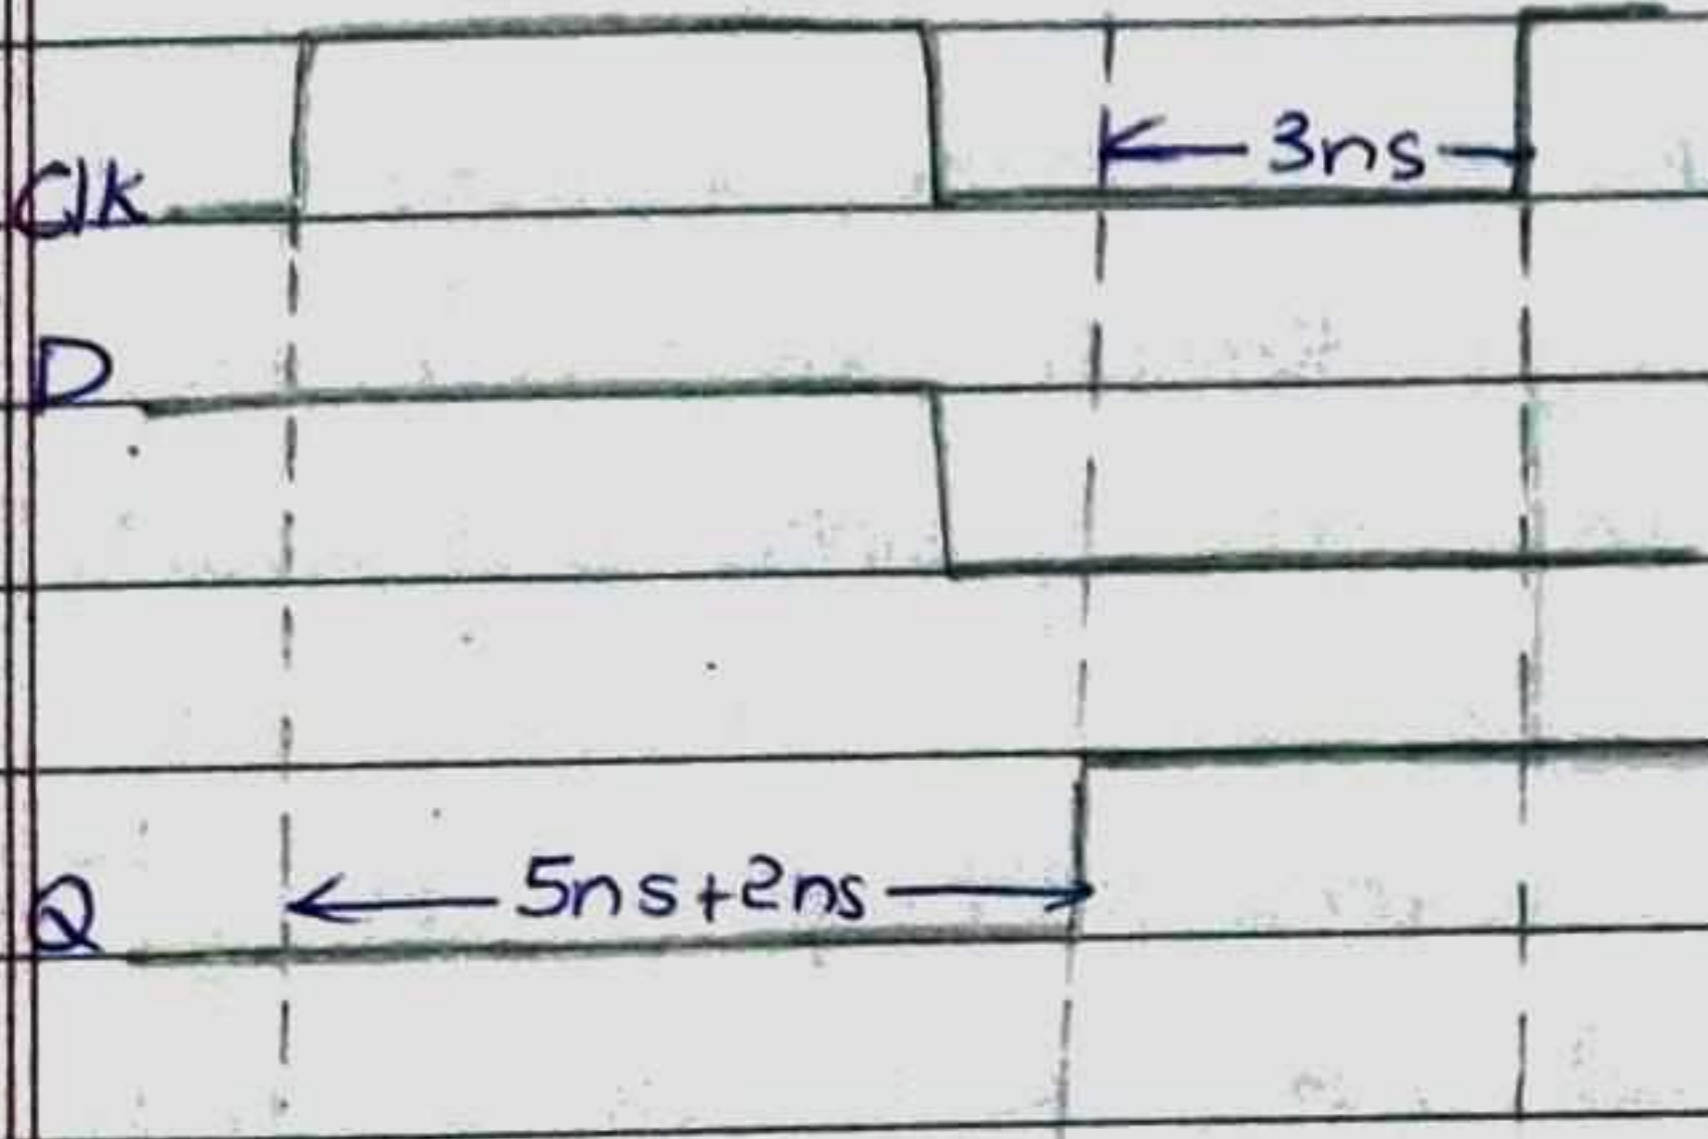 Clk
3ns
D
Q
5ns+2ns